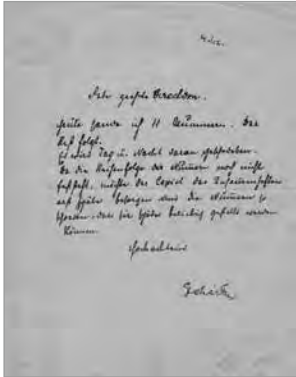 Sehr geehrte Direktion.
Heute sende ich 11 Nummern. Der
Rest folgt.
Es wird Tag u. Nacht daran geschrieben.
Da die Reihenfolge der Nummern noch nicht
feststeht, möchte der Copist das
erst später besorgen und die Nummern so
später beliebig gestellt werden
können.
Hochachtend